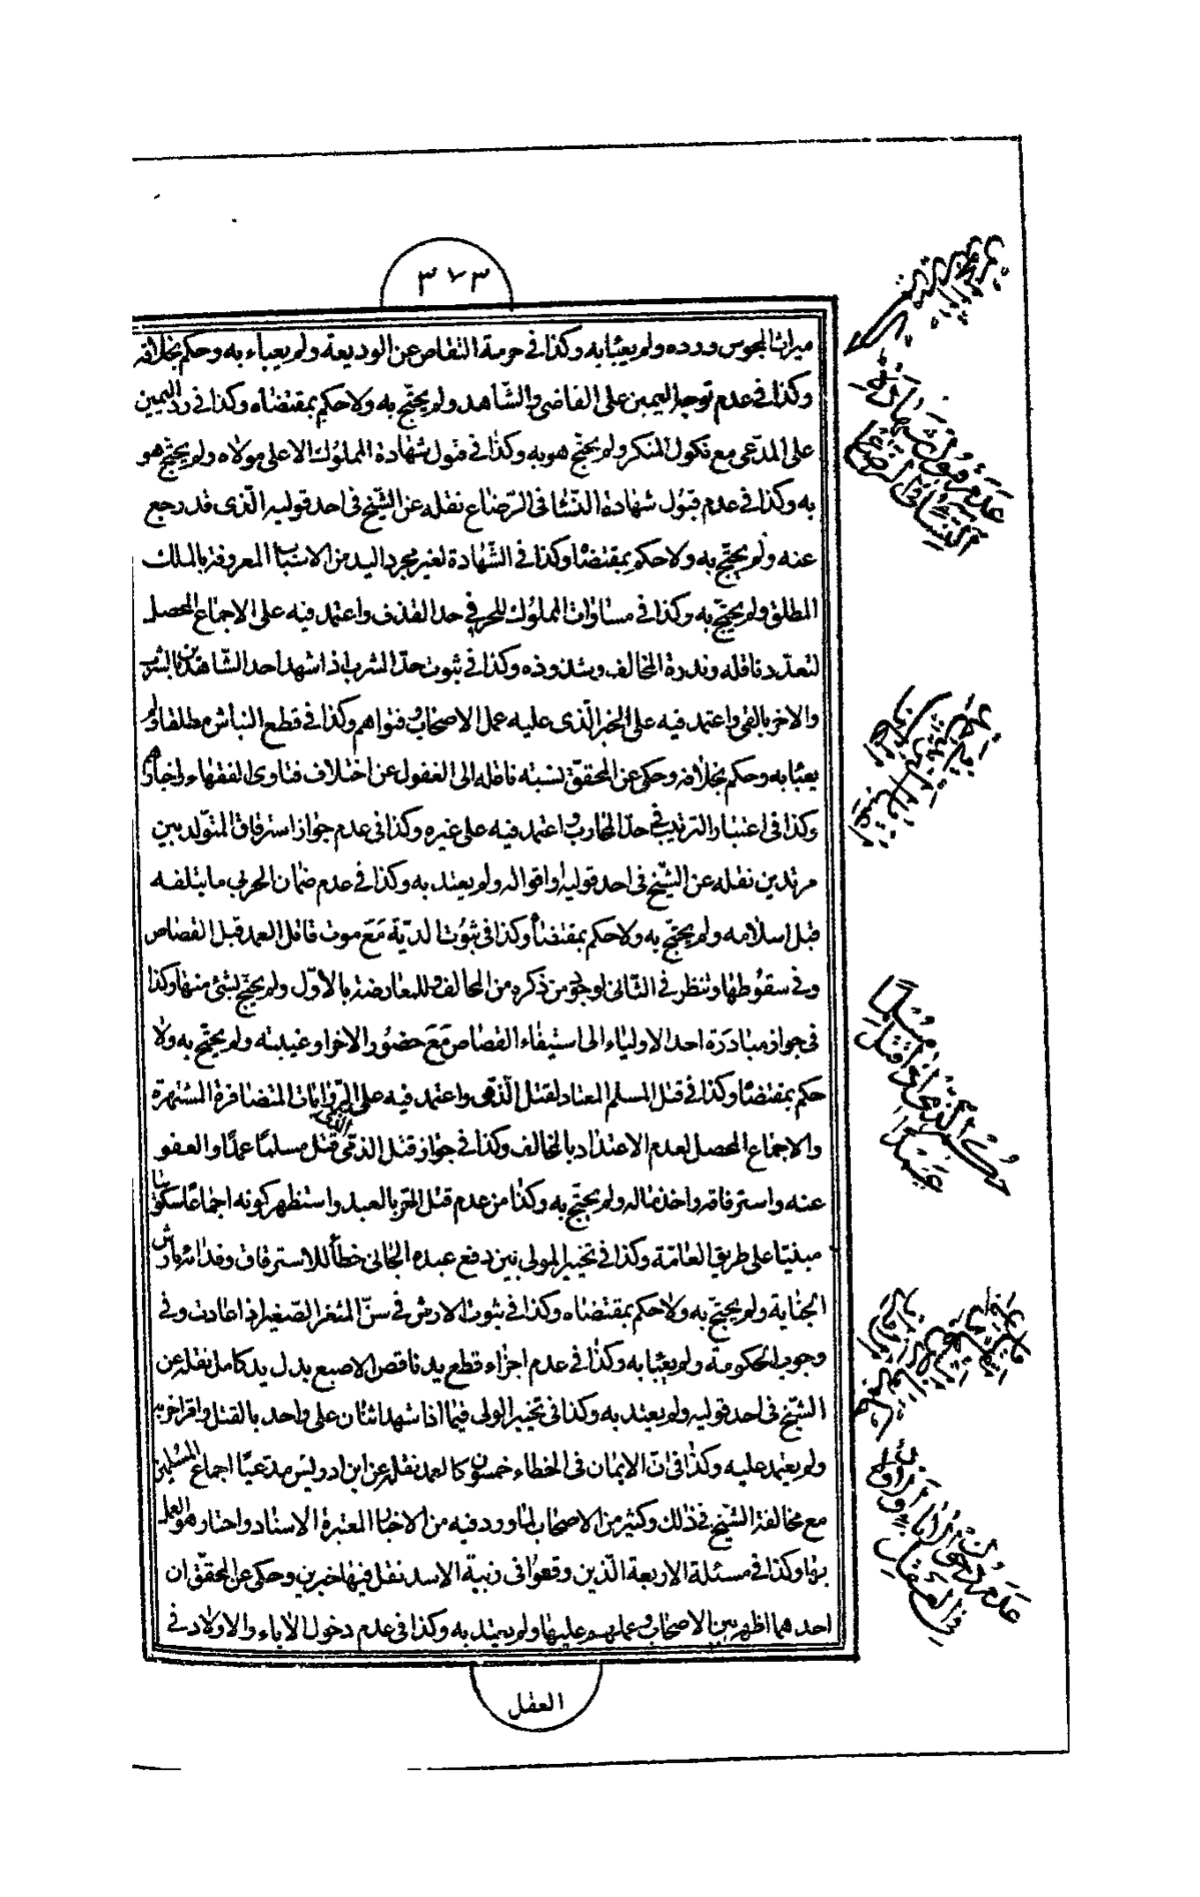 ٣٧٣
ميراث المجوس ورده ولم يعبأ به وكذا في حرمة التقاص عن الوديعة ولم يعباء به وحكم بخلافه
وكذا في عدم توجه اليمين على القاضي والشاهد ولم يحتج به ولا حكم بمقتضاه وكذا في رد اليمين
على المدعى مع نكول المنكر ولم يحتج هو به وكذا في قبول شهادة المملوك الا على مولاه ولم يحتج هو
به وكذا في عدم قبول شهادة النسا في الرضاع نقله عن الشيخ في احد قوليه الذى قد رجع
عنه ولم يحتج به ولا حكم بمقتضاه وكذا في الشهادة لغير مجرد اليد من الاسباب المعروفة بالملك
المطلق ولم يحتج به وكذا في مساوات المملوك للحر في حد القذف واعتمد فيه على الاجماع المحصل
لتعدد ناقله وندرة المخالف وشذوذه وكذا في ثبوت حد الشرب اذا شهد احد الشاهدين بالشرب
والاخر بالقى واعتمد فيه على الخبر الذى عليه عمل الاصحاب وفتواهم وكذا في قطع النباش مطلقا ولم
يعبا به وحكم بخلافه وحكى عن المحقق نسبته ناقله الى الغفول عن اختلاف فتاوى الفقهاء واخبارهم
وكذا في اعتبار الترتيب في حد المحارب واعتمد فيه على غيره وكذا في عدم جواز استرقاق المتولد بين
مرتدين نقله عن الشيخ في احد قوليه او اقواله ولم يعتد به وكذا في عدم ضمان الحربي ما يتلفه
قبل اسلامه ولم يحتج به ولا حكم بمقتضاه وكذا في ثبوت الدية مع موت قاتل العمد قبل القصاص
وفي سقوطها وتنظر في الثانى لوجوه من ذكره من المخالف وللمعارضة بالاول ولم يحتج بشئ منها وكذا
في جواز مبادرة احد الاولياء الى استيفاء القصاص مع حضور الاخر او غيبته ولم يحتج به ولا
حكم بمقتضاه وكذا في قتل المسلم المعتاد لقتل الذمى واعتمد فيه على الروايات المتضافرة المشتهرة
والاجماع المحصل لعدم الاعتداد بالمخالف وكذا في جواز قتل الذمى قتل مسلما عمدا والعفو
عنه واسترقاقه واخذ ماله ولم يحتج به وكذا من عدم قتل الحر بالعبد واستظهر كونه اجماعا سكوتيا
مبنيا على طريق العامة وكذا في تخيير المولى بين دفع عبده الجانى خطأ للاسترقاق وفدائه بارش
الجناية ولم يحتج به ولا حكم بمقتضاه وكذا في ثبوت الارش في سن المثغر الصغير اذا عادت وفي
وجوب الحكومة ولم يعبا به وكذا في عدم اجزاء قطع يد ناقص الاصبع بدل يد كامل نقله عن
الشيخ في احد قوليه ولم يعتد به وكذا في تخيير الولى فيما اذا شهد اثنان على واحد بالقتل واقر اخر به
ولم يعتمد عليه وكذا في ان الايمان في الخطاء خمسون كالعمد نقله عن ابن ادريس مدعيا اجماع المسلمين
مع مخالفة الشيخ في ذلك وكثير من الاصحاب لما ورد فيه من الاخبار المعتبرة الاسناد واختار هو العمل
بها وكذا في مسئلة الاربعة الذين وقعوا في زبية الاسد نقل فيها خبرين وحكى عن المحقق ان
احدهما اظهر بين الاصحاب وعملهم عليها ولم يعتد به وكذا في عدم دخول الاباء والاولاد في
العقل
عدم قبول شهادة
النساء في الرضاع
حكم الذمى اذا قتل مسلما
عمدا
عدم دخول الاباء والاولاد
في العقل